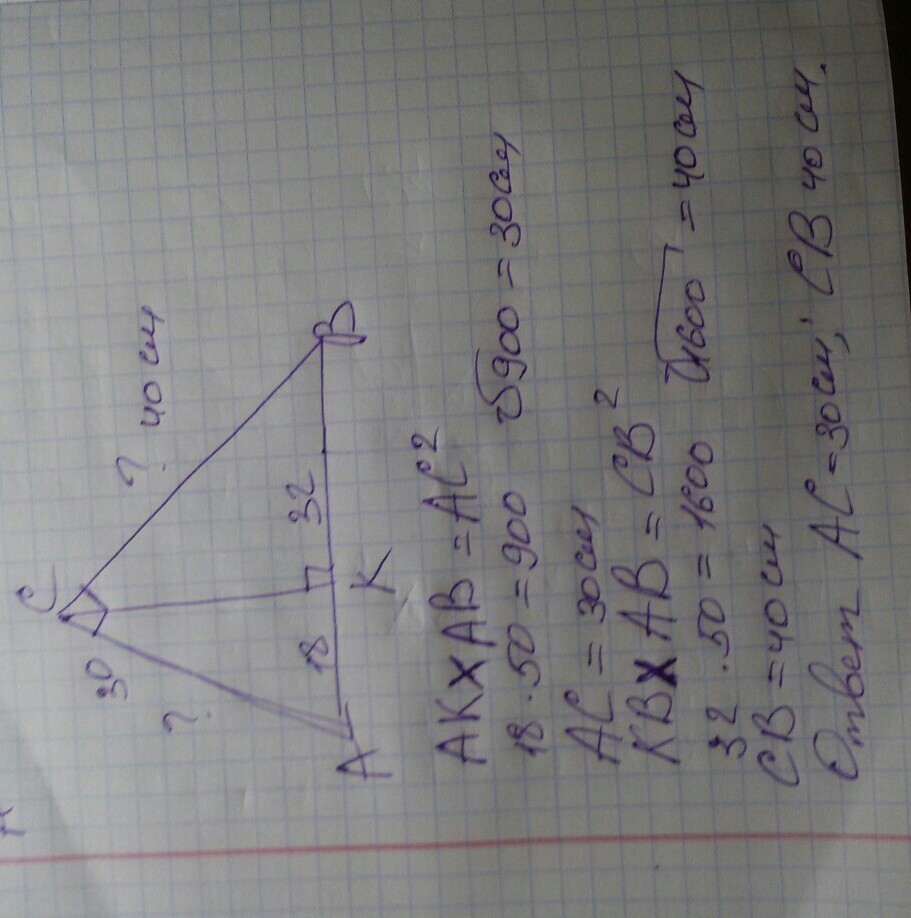 C
30
? 40 см
?
18
32
A
K
B
AK X AB = AC²
18 · 50 = 900 √900 = 30см
AC = 30см
KB X AB = CB²
32 · 50 = 1600 √1600 = 40см
CB = 40см
Ответ AC = 30см; CB 40 см.